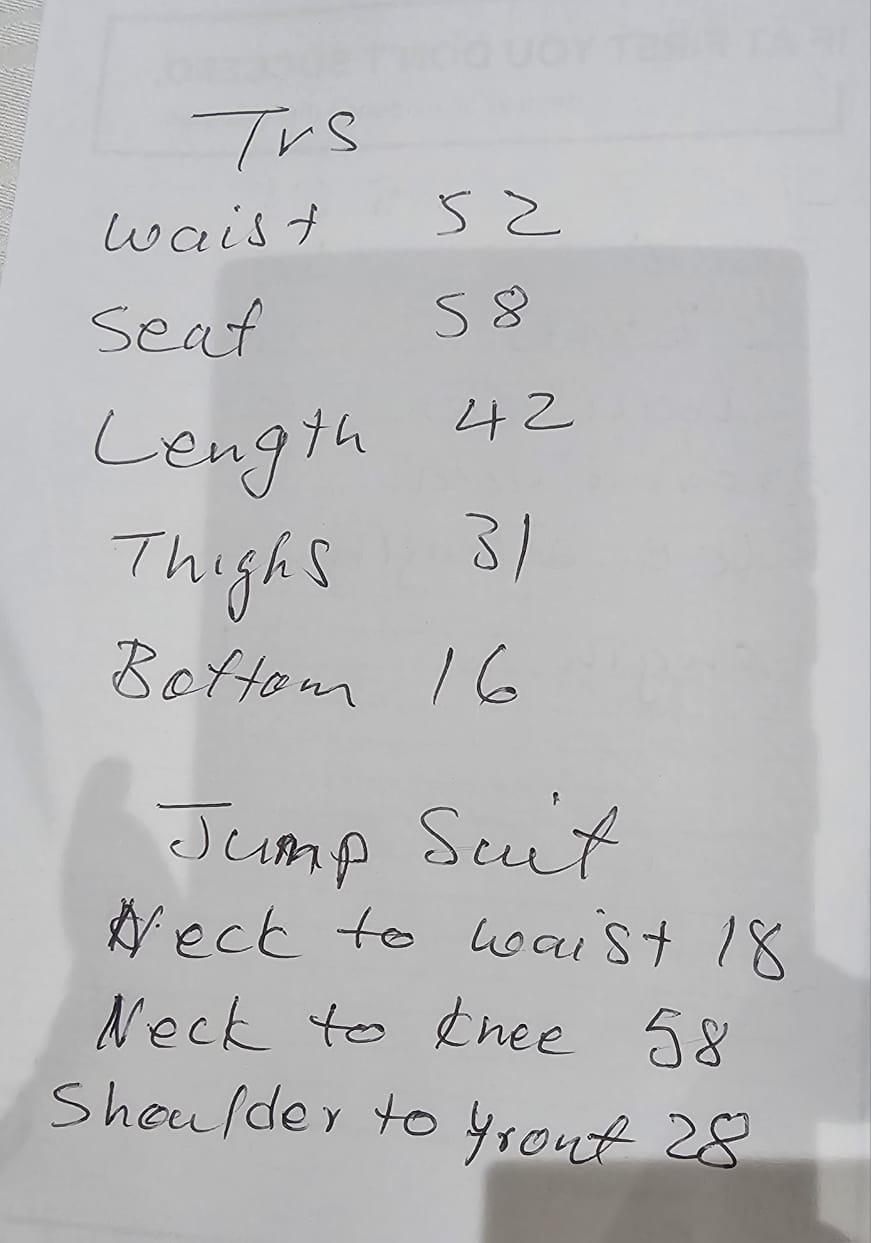 Trs
Waist 52
Seat 58
Length 42
Thighs 31
Bottom 16
Jump Suit
Neck to waist 18
Neck to knee 58
Shoulder to front 28